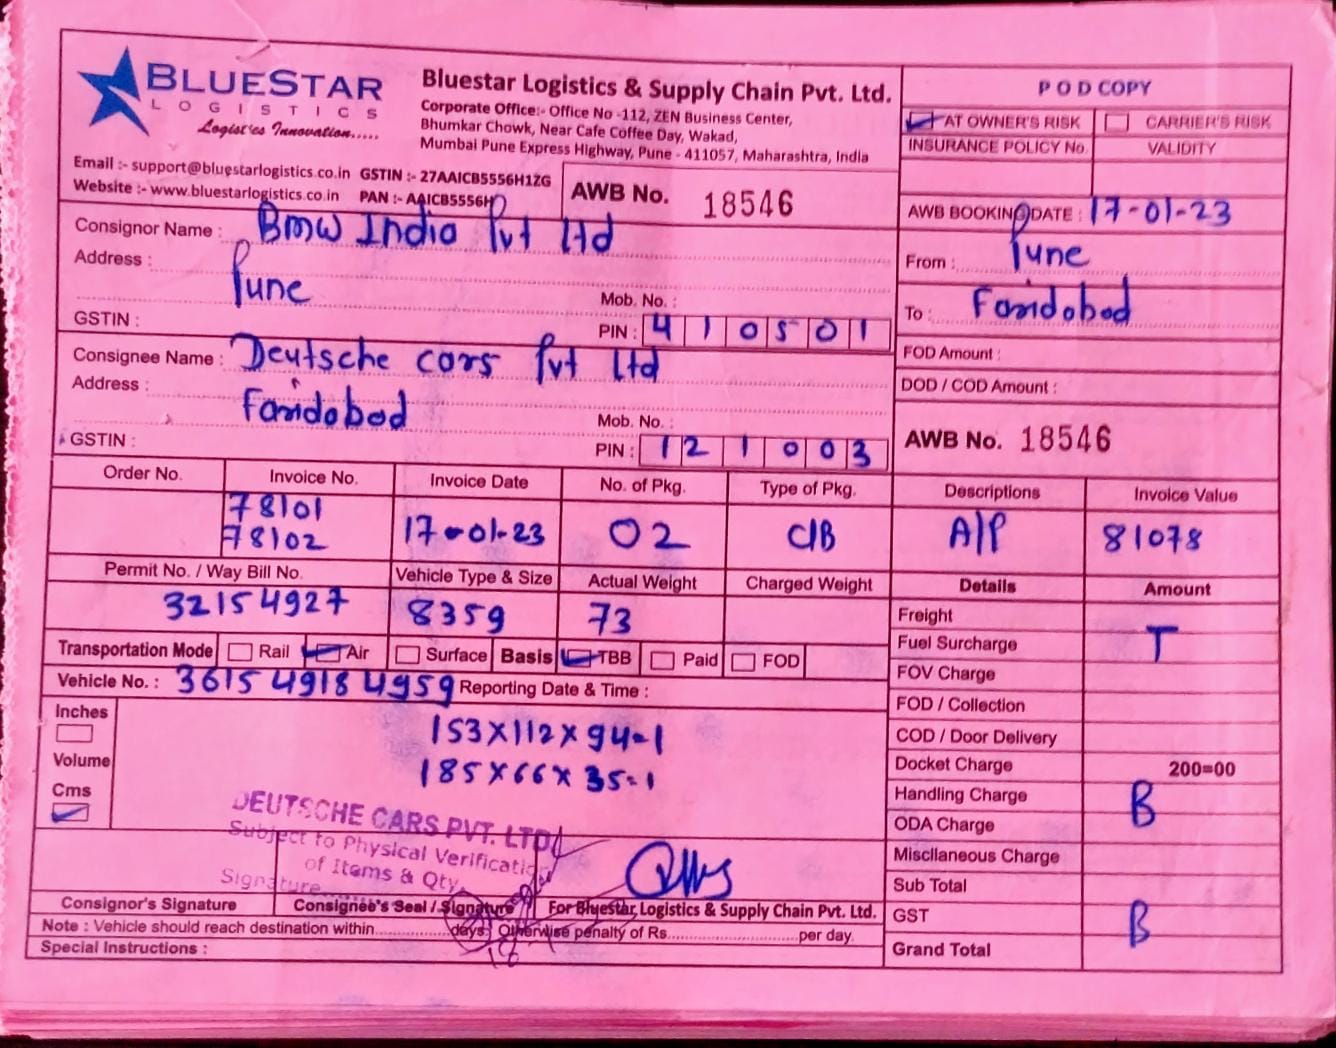 BLUESTAR
LOGISTICS
Logistics Innovation.....
Bluestar Logistics & Supply Chain Pvt. Ltd.
Corporate Office:- Office No -112, ZEN Business Center,
Bhumkar Chowk, Near Cafe Coffee Day, Wakad,
Mumbai Pune Express Highway, Pune - 411057, Maharashtra, India
Email :- support@bluestarlogistics.co.in GSTIN :- 27AAICB5556H1ZG
Website :- www.bluestarlogistics.co.in PAN :- AAICB5556H
AWB No. 18546
POD COPY
AT OWNER'S RISK CARRIER'S RISK
INSURANCE POLICY No. VALIDITY
AWB BOOKING DATE : 17-01-23
From : Pune
To : Faridabad
FOD Amount :
DOD / COD Amount :
AWB No. 18546
Consignor Name : BMW India Pvt Ltd
Address : Pune
Mob. No. :
GSTIN : PIN : 410501
Consignee Name : Deutsche cars Pvt Ltd
Address : Faridabad
Mob. No. :
GSTIN : PIN : 121003
Order No. Invoice No. Invoice Date No. of Pkg. Type of Pkg. Descriptions Invoice Value
78101
78102 17-01-23 02 C/B A/P 81078
Permit No. / Way Bill No. Vehicle Type & Size Actual Weight Charged Weight Details Amount
32154927 8359 73
Transportation Mode Rail Air Surface Basis TBB Paid FOD
Vehicle No. : 3615 4918 4959 Reporting Date & Time :
Inches
Volume
Cms
153X112X94=1
185X66X35=1
Freight
Fuel Surcharge T
FOV Charge
FOD / Collection
COD / Door Delivery
Docket Charge 200=00
Handling Charge B
ODA Charge
Miscllaneous Charge
Sub Total
GST B
Grand Total
DEUTSCHE CARS PVT. LTD.
Subject to Physical Verification
of Items & Qty.
Signature
Consignor's Signature Consignee's Seal / Signature For Bluestar Logistics & Supply Chain Pvt. Ltd.
Note : Vehicle should reach destination within..................days. Otherwise penalty of Rs..........................per day.
Special Instructions :